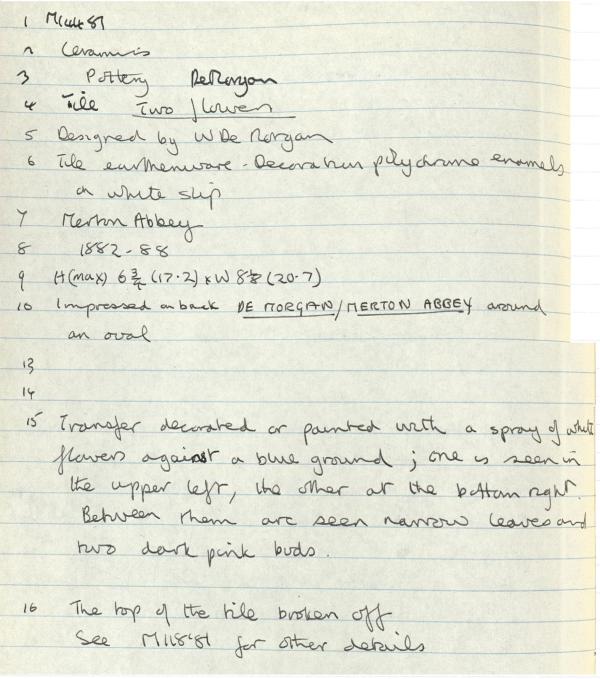 1
2 Ceramics
3 Pottery De Morgan
4 Tile Two flowers
5 Designed by W De Morgan
6 Tile earthenware - Decoration polychrome enamels
on white slip
7 Merton Abbey
8 1882-88
9 H(max) 6 3/4 (17.2) x W 8 1/8 (20.7)
10 Impressed on back DE MORGAN/MERTON ABBEY around
an oval
13
14
15 Transfer decorated or painted with a spray of white
flowers against a blue ground ; one is seen in
the upper left, the other at the bottom right.
Between them are seen narrow leaves and
two dark pink buds.
16 The top of the tile broken off
See M118'81 for other details